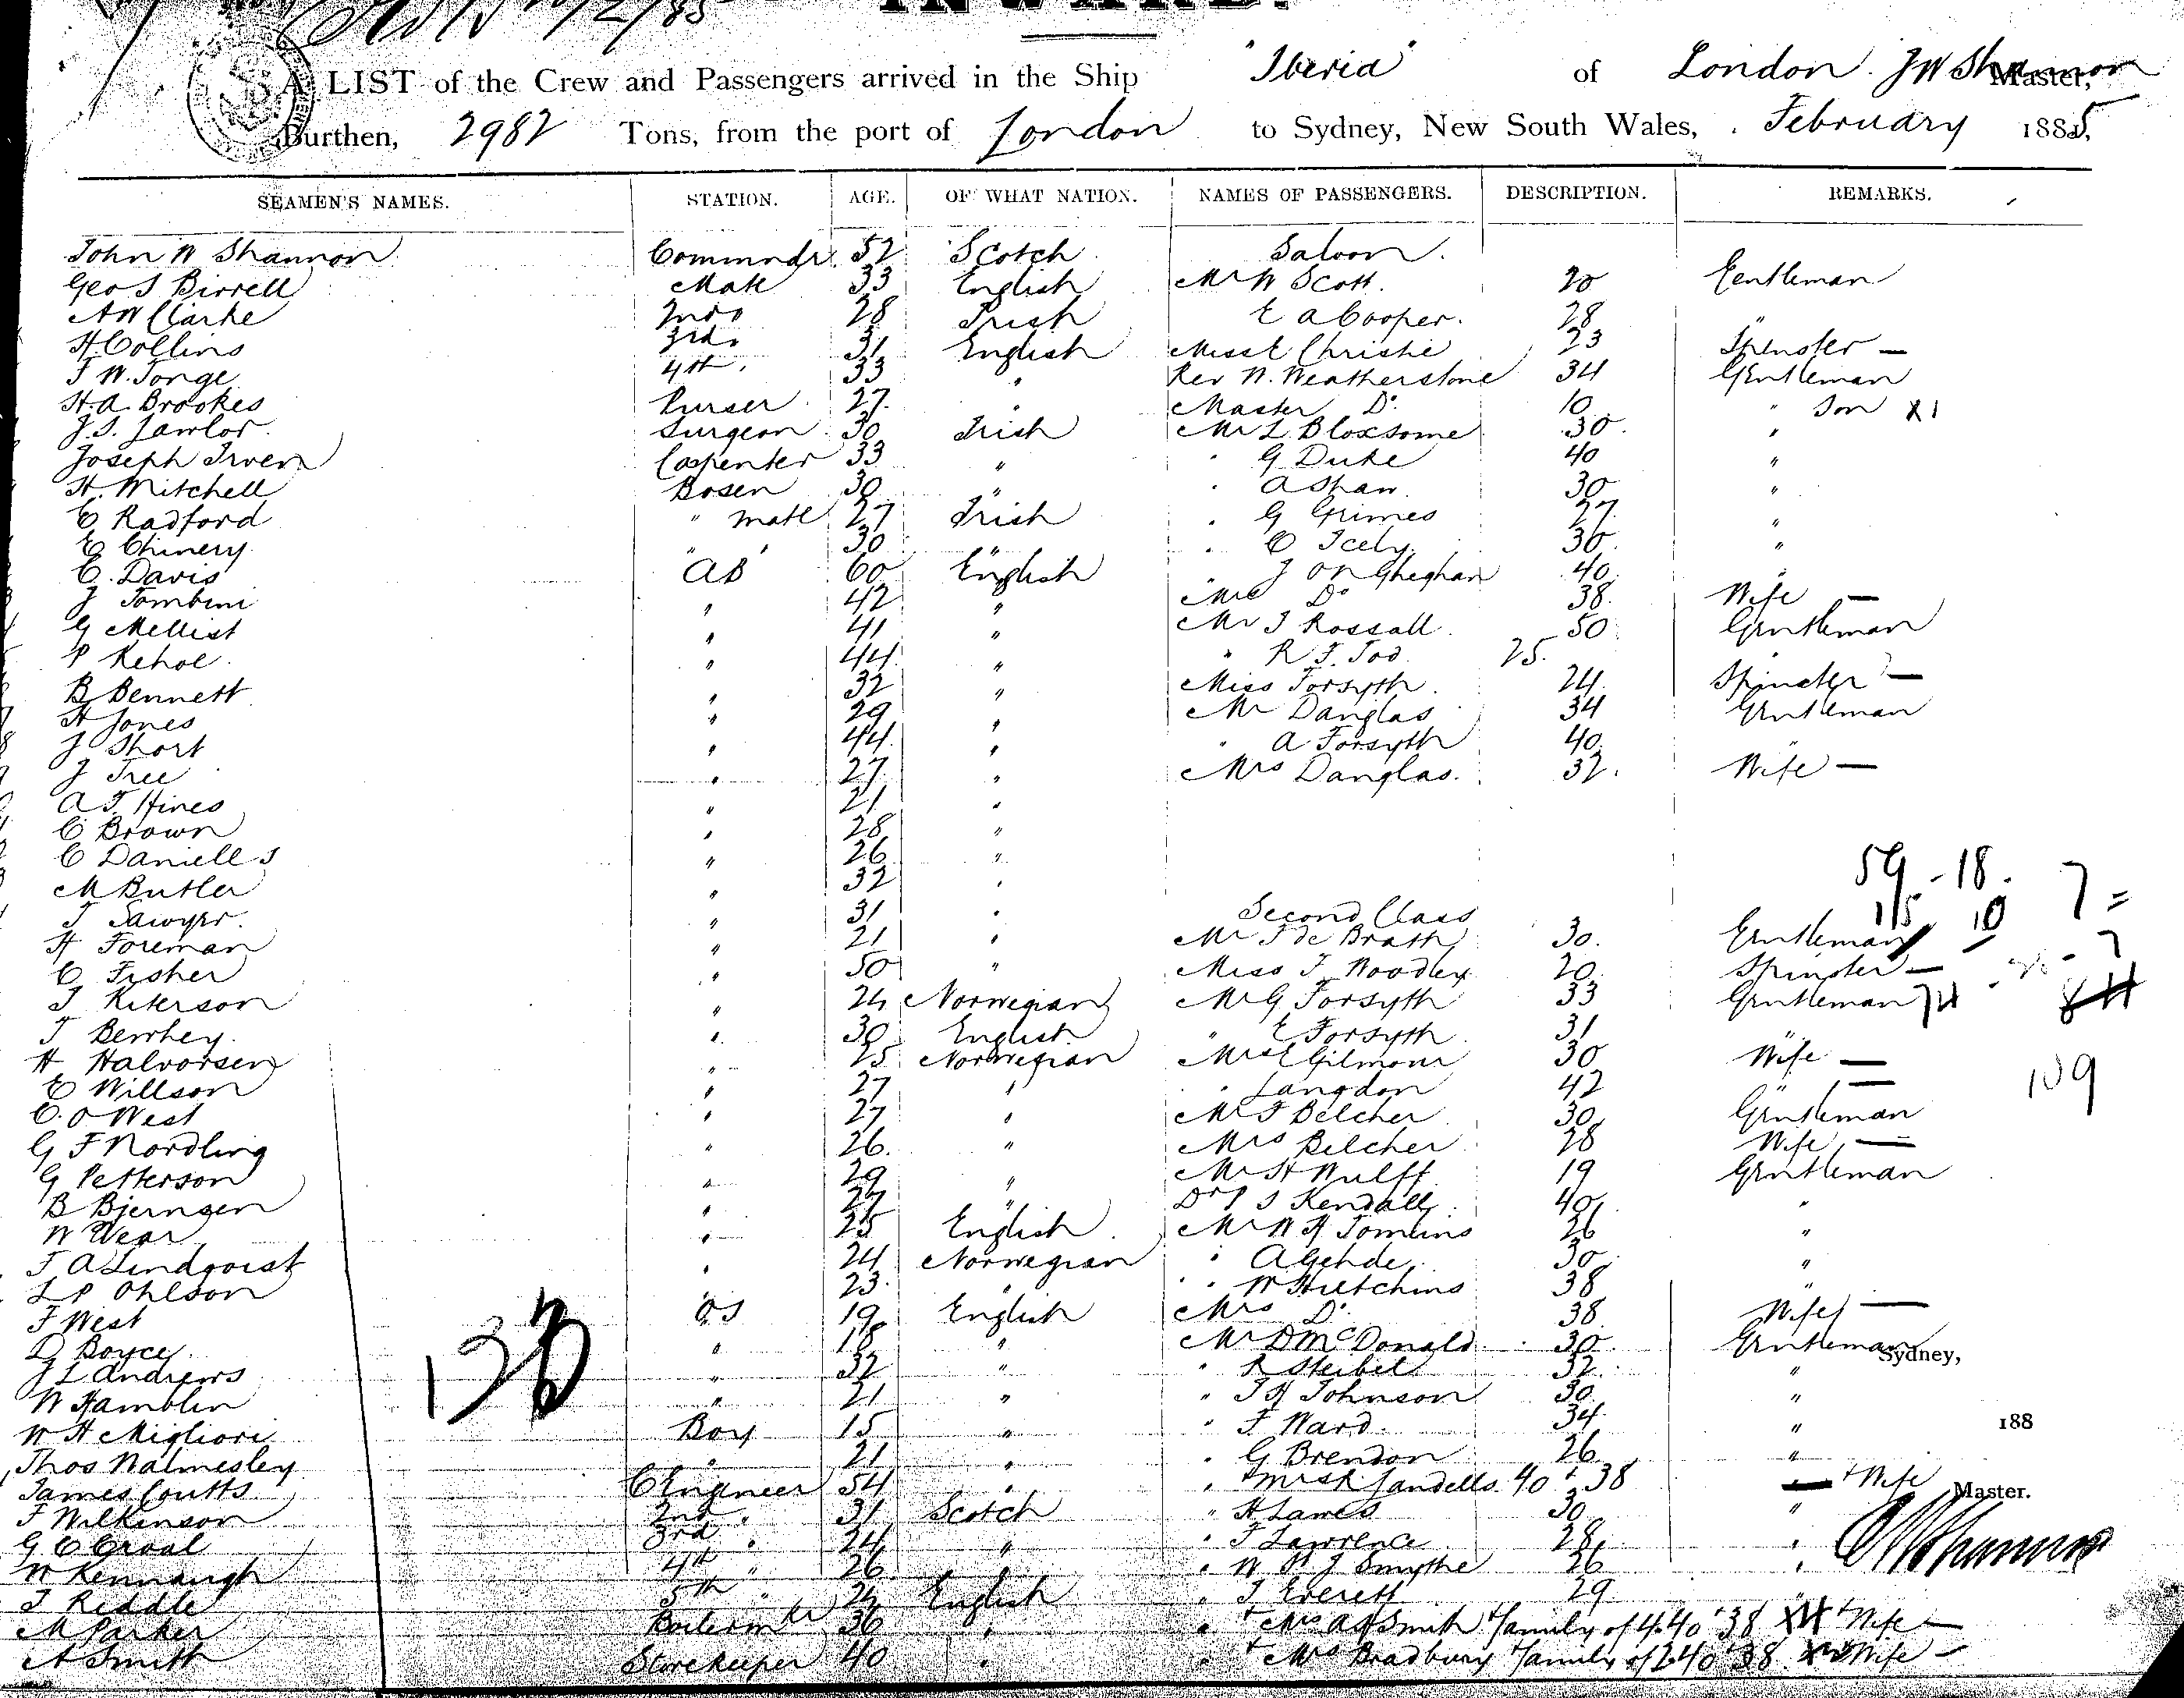 INWARD.
A LIST of the Crew and Passengers arrived in the Ship "Iberia" of London. J W Shannon Master,
Burthen, 2982 Tons, from the port of London to Sydney, New South Wales, February 1885,
SEAMEN'S NAMES. STATION. AGE. OF WHAT NATION. NAMES OF PASSENGERS. DESCRIPTION. REMARKS.
John W Shannon Commandr. 52 Scotch Saloon.
Geo S Birrell Mate 33 English Mr W Scott. 20 Gentleman
A W Clarke 2nd " 28 Irish E A Cooper. 28 "
H Collins 3rd " 31 English Miss E Christie 23 Spinster —
J W. Tonge 4th " 33 " Rev W. Weatherstone 34 Gentleman
H. A. Brookes Purser 27 " Master Do. 10 " Son X1
J. S. Lawlor Surgeon 30 Irish Mr L Bloxsome 30 "
Joseph Irven Carpenter 33 " " G Duke 40 "
H. Mitchell Bosen 30 " " A Shaw 30 "
E Radford " mate 27 Irish " G Grimes 27 "
E Chinery " " 30 " " C Icely 36 "
C. Davis AB 60 English " J Gheghan 40 "
J Tombini " 42 " Mrs Do 38 Wife —
G Mellist " 41 " Mr J Rossall 50 Gentleman
P Kehoe " 44 " " R. F. Tod 25.
B Bennett " 32 " Miss Forsyth 24 Spinster —
H Jones " 29 " Mr Danglas 34 Gentleman
J Short " 44 " " A Forsyth 40 "
J Tree " 27 " Mrs Danglas. 32. Wife —
A T Hines " 21 "
C Brown " 28 "
C Daniells " 26 "
M Butler " 32 " 59 - 18. 7 =
T Sawyer. " 31 " Second Class 15 10
H Foreman " 21 " Mr T de Brath 30. Gentleman
C Fisher " 50 " Miss F Woodley 20 Spinster — 7
J Kiterson " 24 Norwegian Mr G Forsyth 33 Gentleman 74
T Berrhey " 30 English " E Forsyth 31
H Halvorsen " 25 Norwegian Mrs E Gilmour 30 Wife —
E Willson " 27 " " Langdon 42 " — 109
C. O West " 27 " Mr F Belcher 30 Gentleman
G F Nordling " 26. " Mrs Belcher 28 Wife —
G Petterson " 29 " Mr H Wulff 19 Gentleman
B Bjerngen " 27 " Dr S Kendall 40 "
W Wear " 25 English Mr W H Tomkins 26 "
J A Lindqvist " 24 Norwegian " A Gehde 30 "
L P Ohlson " 23 " " W Hutchins 38 "
F West OS 19 English Mrs Do. 38 Wife —
D Boyce " 18 " Mr D McDonald 30 Gentleman Sydney,
J L Andrews " 32 " " R Steibel 32 "
W Hamblin " 21 " " J H Johnson 30 "
W H Migliori Boy 15 " " F Ward 34 " 188
Thos Walmesley " 21 " " G Brendon 26 "
James Coutts C Engineer 54 " " + Mrs R Jandells 40 + 38 — + Wife Master.
F Wilkinson 2nd " 31 Scotch " H Lames 30 "
G C Croal 3rd " 24 " " J Lawrence 28 " J W Shannon
W Kennaugh 4th " 26 " " W H J Smythe 26 "
J Riddle 5th " 24 English " J Everett 29 "
M Parker Boilermaker 36 " " + Mrs A H Smith + family of 4. 40 + 38 X4 + Wife —
A Smith Storekeeper 40 " " + Mrs Bradbury + family of 2 40 + 38 X2 + Wife —